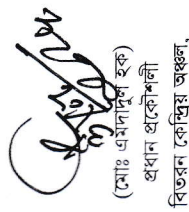 (মোঃ এমদাদুল হক)
প্রধান প্রকৌশলী
বিতরন কেন্দ্রিয় অঞ্চল,